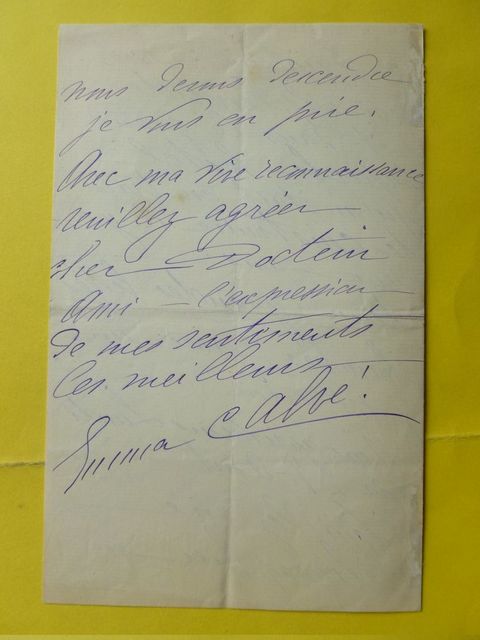 nous devons descendre
je vous en prie.
Avec ma vive reconnaissance
veuillez agréer
cher Docteur
Ami - l'expression
de mes sentiments
les meilleurs
Emma Calvé!